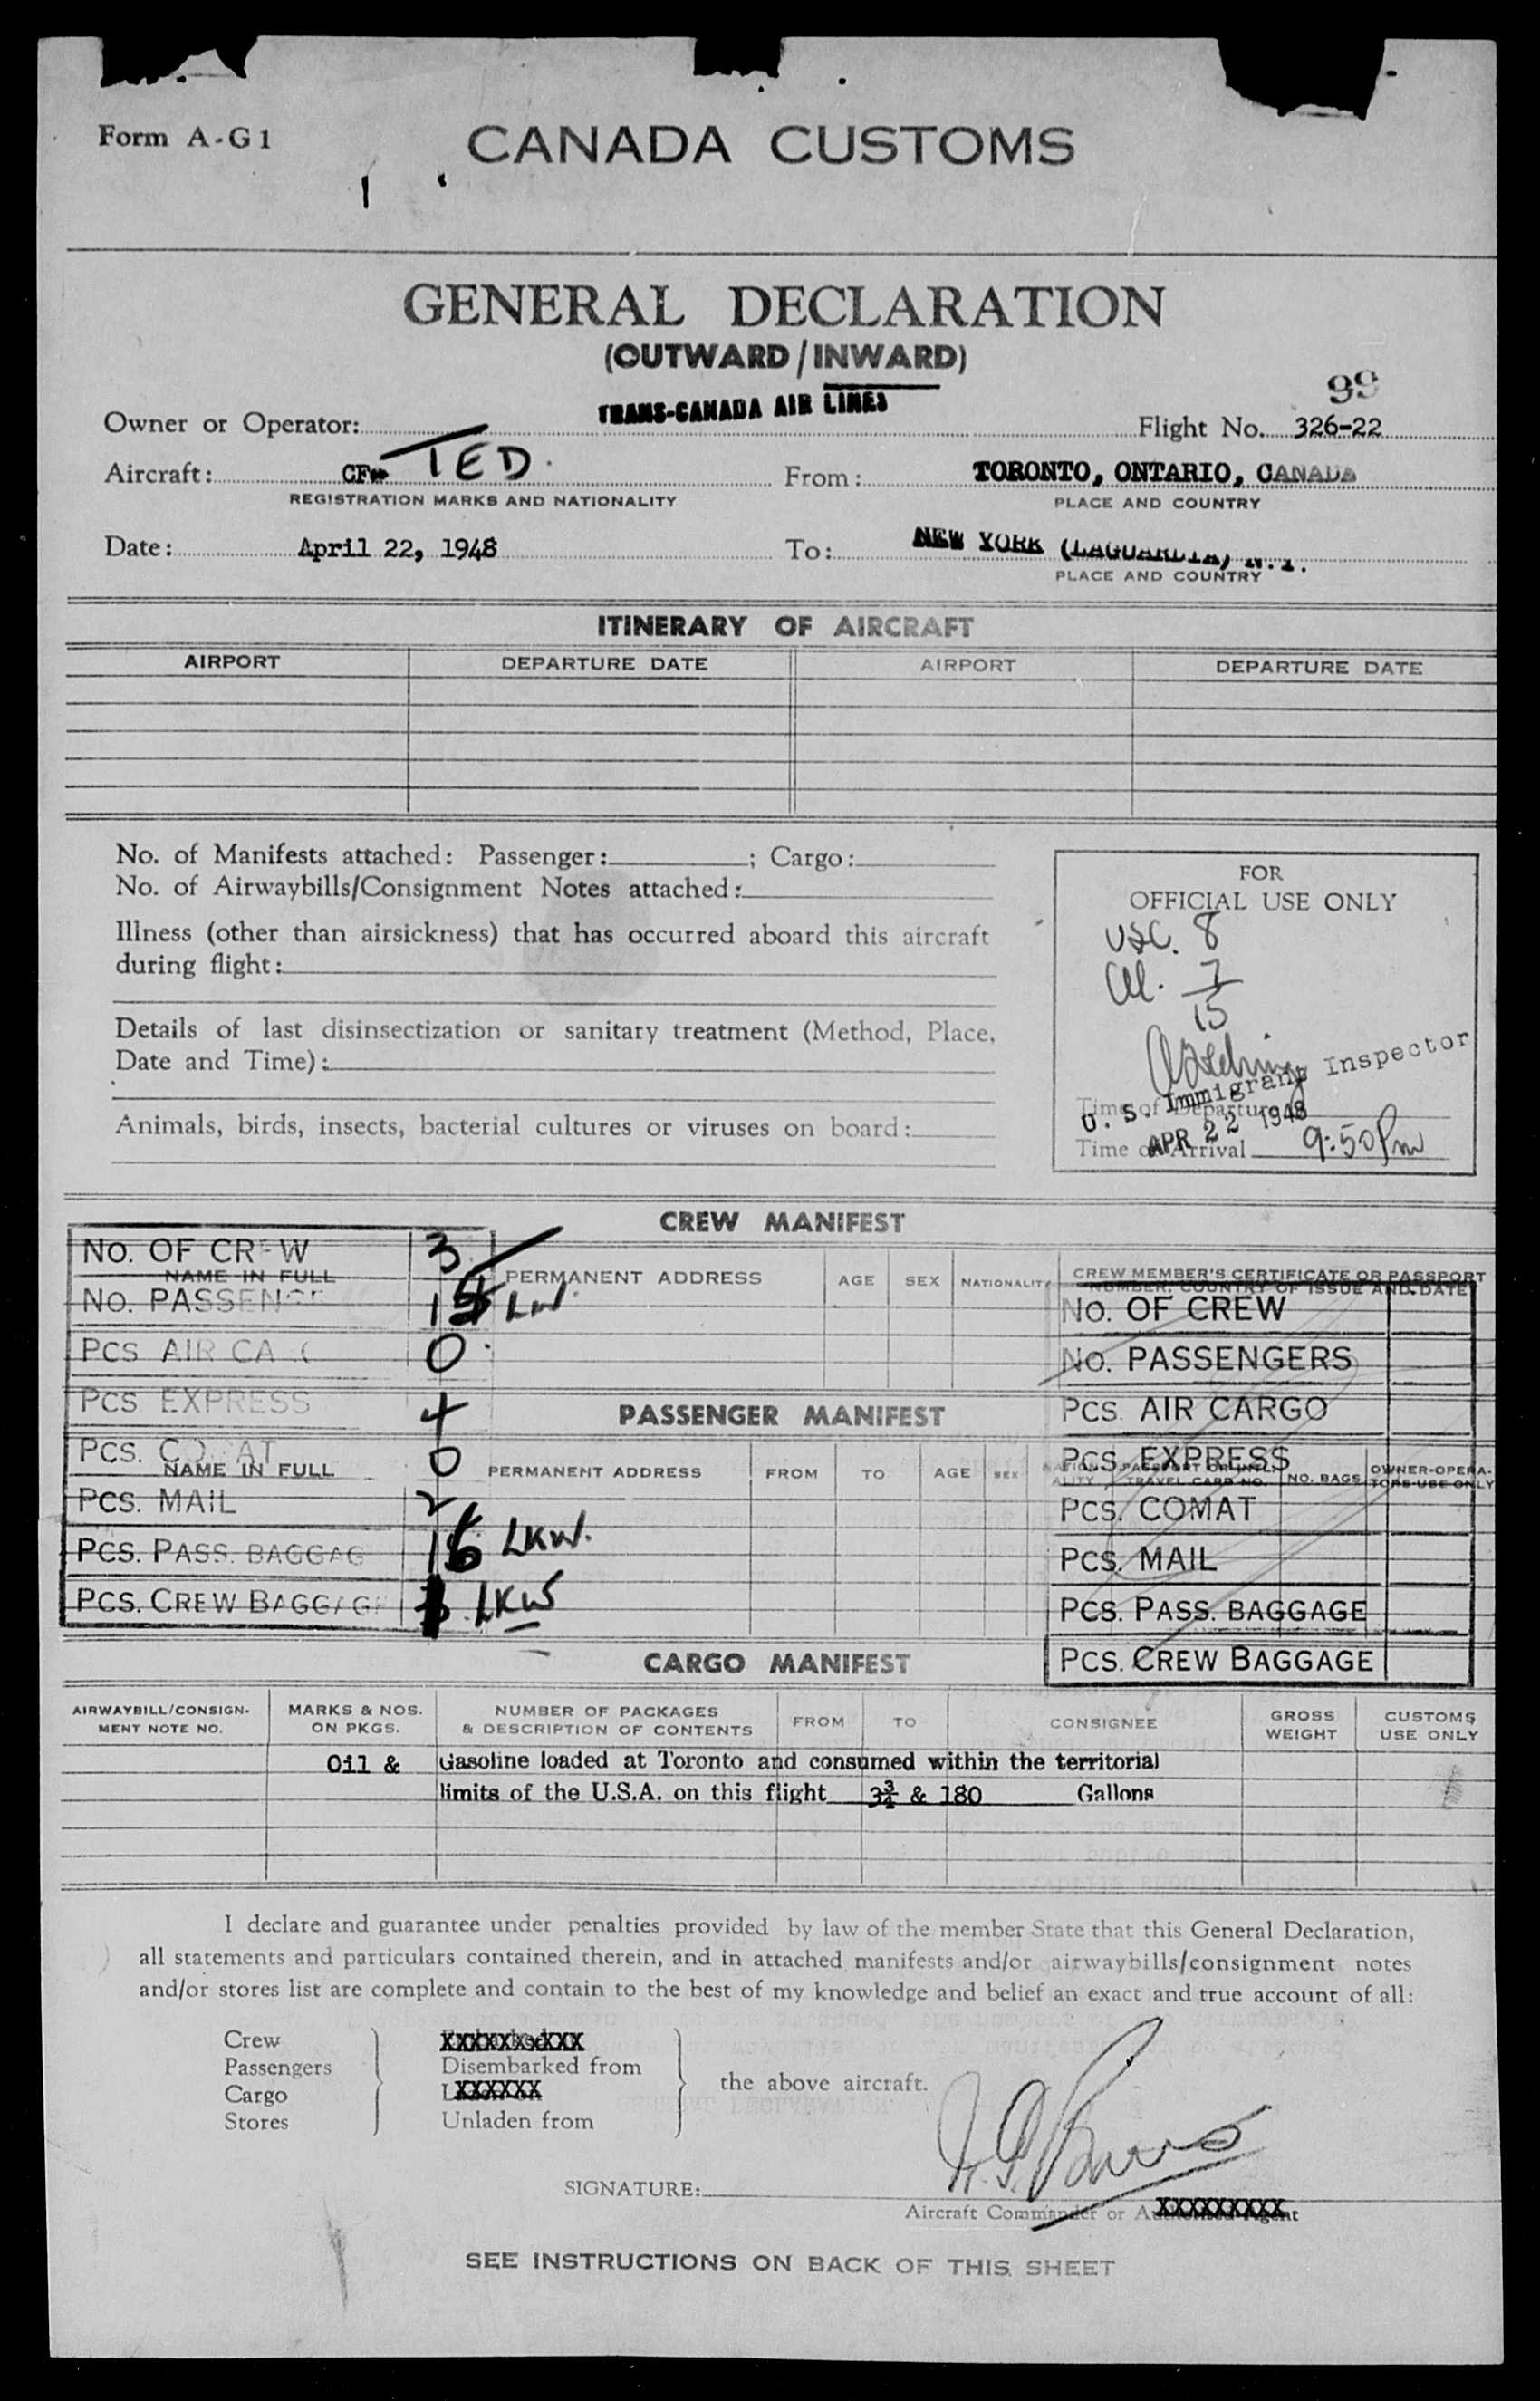 Form A-G1
CANADA CUSTOMS
GENERAL DECLARATION
(OUTWARD/INWARD)
99
Owner or Operator: TRANS-CANADA AIR LINES Flight No. 326-22
Aircraft: CF- TED. From: TORONTO, ONTARIO, CANADA
REGISTRATION MARKS AND NATIONALITY PLACE AND COUNTRY
Date: April 22, 1948 To: NEW YORK (LAGUARDIA) N.Y.
PLACE AND COUNTRY
ITINERARY OF AIRCRAFT
AIRPORT DEPARTURE DATE AIRPORT DEPARTURE DATE
No. of Manifests attached: Passenger: ; Cargo:
No. of Airwaybills/Consignment Notes attached:
Illness (other than airsickness) that has occurred aboard this aircraft
during flight:
Details of last disinsectization or sanitary treatment (Method, Place,
Date and Time):
Animals, birds, insects, bacterial cultures or viruses on board:
FOR
OFFICIAL USE ONLY
USC. 8
7
15
U. S. Immigrant Inspector
Time of Departure
APR 22 1948
Time of Arrival 9:50 Pm
CREW MANIFEST
NAME IN FULL PERMANENT ADDRESS AGE SEX NATIONALITY CREW MEMBER'S CERTIFICATE OR PASSPORT
NUMBER, COUNTRY OF ISSUE AND DATE
No. OF CREW 3
No. PASSENGE 15
Pcs AIR CA 0
Pcs EXPRESS 4
Pcs. COMAT 0
Pcs. MAIL 2
Pcs. PASS. BAGGAG 16 LKW.
Pcs. CREW BAGGAGE LKW
No. OF CREW
No. PASSENGERS
Pcs. AIR CARGO
Pcs. EXPRESS
Pcs. COMAT
Pcs. MAIL
Pcs. PASS. BAGGAGE
Pcs. CREW BAGGAGE
PASSENGER MANIFEST
NAME IN FULL PERMANENT ADDRESS FROM TO AGE SEX NATIONALITY PASSPORT OR INTL. TRAVEL CARD NO. NO. BAGS OWNER-OPERATORS USE ONLY
CARGO MANIFEST
AIRWAYBILL/CONSIGN- MARKS & NOS. NUMBER OF PACKAGES FROM TO CONSIGNEE GROSS CUSTOMS
MENT NOTE NO. ON PKGS. & DESCRIPTION OF CONTENTS WEIGHT USE ONLY
Oil & Gasoline loaded at Toronto and consumed within the territorial
limits of the U.S.A. on this flight 3¾ & 180 Gallons
I declare and guarantee under penalties provided by law of the member State that this General Declaration,
all statements and particulars contained therein, and in attached manifests and/or airwaybills/consignment notes
and/or stores list are complete and contain to the best of my knowledge and belief an exact and true account of all:
Crew XXXXXXXXXX
Passengers Disembarked from
Cargo XXXXXX the above aircraft.
Stores Unladen from
SIGNATURE:
Aircraft Commander or XXXXXXXXX
SEE INSTRUCTIONS ON BACK OF THIS SHEET